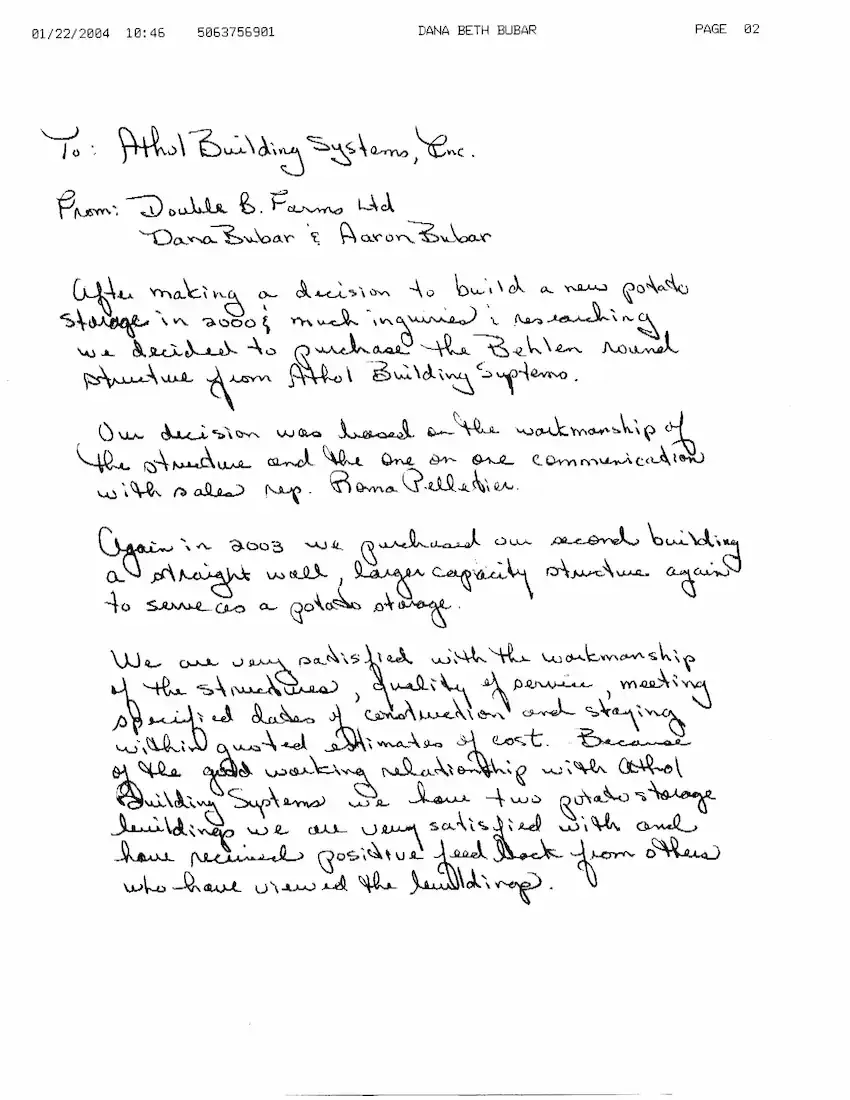 01/22/2004 10:46 5063756901 DANA BETH BUBAR PAGE 02
To: Athol Building Systems, Inc.
From: Double B. Farms Ltd
Dana Bubar & Aaron Bubar
After making a decision to build a new potato
storage in 2000 & much inquiries & researching
we decided to purchase the Behlen round
structure from Athol Building Systems.
Our decision was based on the workmanship of
the structure and the one on one communication
with sales rep. Roma Pelletier.
Again in 2003 we purchased our second building
a straight wall, larger capacity structure again
to serve as a potato storage.
We are very satisfied with the workmanship
of the structures, quality of service, meeting
specified dates of construction and staying
within quoted estimates of cost. Because
of the good working relationship with Athol
Building Systems we have two potato storage
buildings we are very satisfied with and
have received positive feed back from others
who have viewed the buildings.